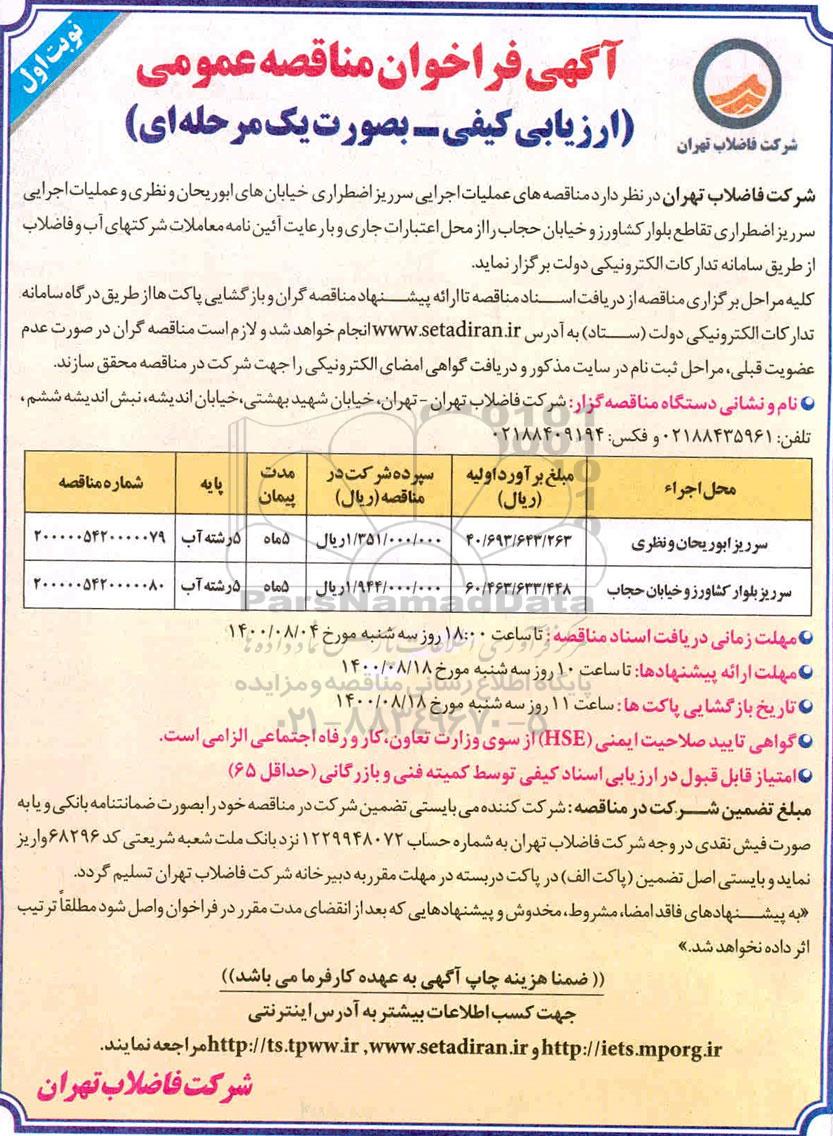 نوبت اول
آگهی فراخوان مناقصه عمومی
(ارزیابی کیفی - بصورت یک مرحله ای)
شرکت فاضلاب تهران
شرکت فاضلاب تهران در نظر دارد مناقصه های عملیات اجرایی سرریز اضطراری خیابان های ابوریحان و نظری و عملیات اجرایی
سرریز اضطراری تقاطع بلوار کشاورز و خیابان حجاب را از محل اعتبارات جاری و با رعایت آئین نامه معاملات شرکتهای آب و فاضلاب
از طریق سامانه تدارکات الکترونیکی دولت برگزار نماید.
کلیه مراحل برگزاری مناقصه از دریافت اسناد مناقصه تا ارائه پیشنهاد مناقصه گران و بازگشایی پاکت ها از طریق درگاه سامانه
تدارکات الکترونیکی دولت (ستاد) به آدرس www.setadiran.ir انجام خواهد شد و لازم است مناقصه گران در صورت عدم
عضویت قبلی، مراحل ثبت نام در سایت مذکور و دریافت گواهی امضای الکترونیکی را جهت شرکت در مناقصه محقق سازند.
نام و نشانی دستگاه مناقصه گزار: شرکت فاضلاب تهران - تهران، خیابان شهید بهشتی، خیابان اندیشه، نبش اندیشه ششم،
تلفن: ۰۲۱۸۸۴۳۵۹۶۱ و فکس: ۰۲۱۸۸۴۰۹۱۹۴
محل اجراء مبلغ برآورد اولیه (ریال) سپرده شرکت در مناقصه (ریال) مدت پیمان پایه شماره مناقصه
سرریز ابوریحان و نظری ۴۰/۶۹۳/۶۴۳/۲۶۳ ۱/۳۵۱/۰۰۰/۰۰۰ریال ۵ماه ۵رشته آب ۲۰۰۰۰۰۵۴۲۰۰۰۰۰۷۹
سرریز بلوار کشاورز و خیابان حجاب ۶۰/۴۶۳/۶۳۳/۴۴۸ ۱/۹۴۴/۰۰۰/۰۰۰ریال ۵ماه ۵رشته آب ۲۰۰۰۰۰۵۴۲۰۰۰۰۰۸۰
ParsNamadData
مهلت زمانی دریافت اسناد مناقصه : تا ساعت ۱۸:۰۰ روز سه شنبه مورخ ۱۴۰۰/۰۸/۰۴
مرکز فرآوری اطلاعات پارس نماد داده ها
مهلت ارائه پیشنهادها: تا ساعت ۱۰ روز سه شنبه مورخ ۱۴۰۰/۰۸/۱۸
پایگاه اطلاع رسانی مناقصه و مزایده
تاریخ بازگشایی پاکت ها : ساعت ۱۱ روز سه شنبه مورخ ۱۴۰۰/۰۸/۱۸
۰۲۱-۸۸۳۴۹۶۷۰-۵
گواهی تایید صلاحیت ایمنی (HSE) از سوی وزارت تعاون، کار و رفاه اجتماعی الزامی است.
امتیاز قابل قبول در ارزیابی اسناد کیفی توسط کمیته فنی و بازرگانی (حداقل ۶۵)
مبلغ تضمین شرکت در مناقصه : شرکت کننده می بایستی تضمین شرکت در مناقصه خود را بصورت ضمانتنامه بانکی و یا به
صورت فیش نقدی در وجه شرکت فاضلاب تهران به شماره حساب ۱۲۲۹۹۴۸۰۷۲ نزد بانک ملت شعبه شریعتی کد ۶۸۲۹۶ واریز
نماید و بایستی اصل تضمین (پاکت الف) در پاکت دربسته در مهلت مقرر به دبیرخانه شرکت فاضلاب تهران تسلیم گردد.
«به پیشنهادهای فاقد امضا، مشروط، مخدوش و پیشنهادهایی که بعد از انقضای مدت مقرر در فراخوان واصل شود مطلقاً ترتیب
اثر داده نخواهد شد.»
(( ضمنا هزینه چاپ آگهی به عهده کارفرما می باشد))
جهت کسب اطلاعات بیشتر به آدرس اینترنتی
http://iets.mporg.ir و http://ts.tpww.ir ,www.setadiran.ir مراجعه نمایند.
شرکت فاضلاب تهران